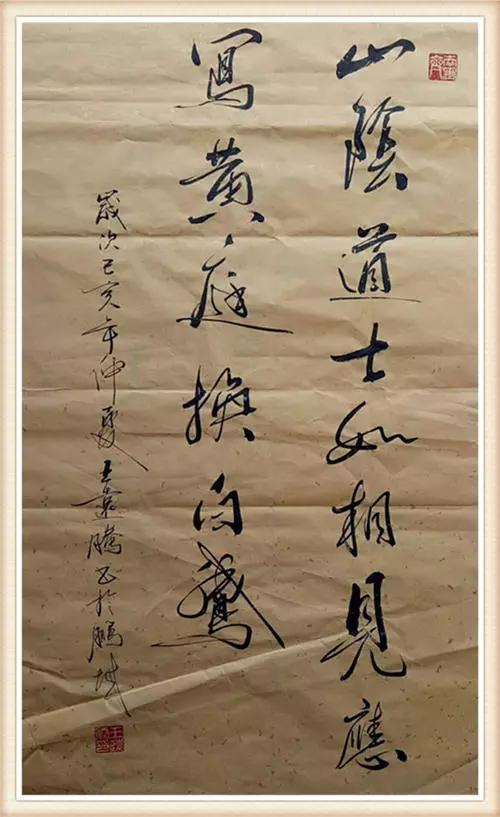 山陰道士如相見應
寫黄庭換白鵞
歲次己亥年仲夏王騰书於鵬城